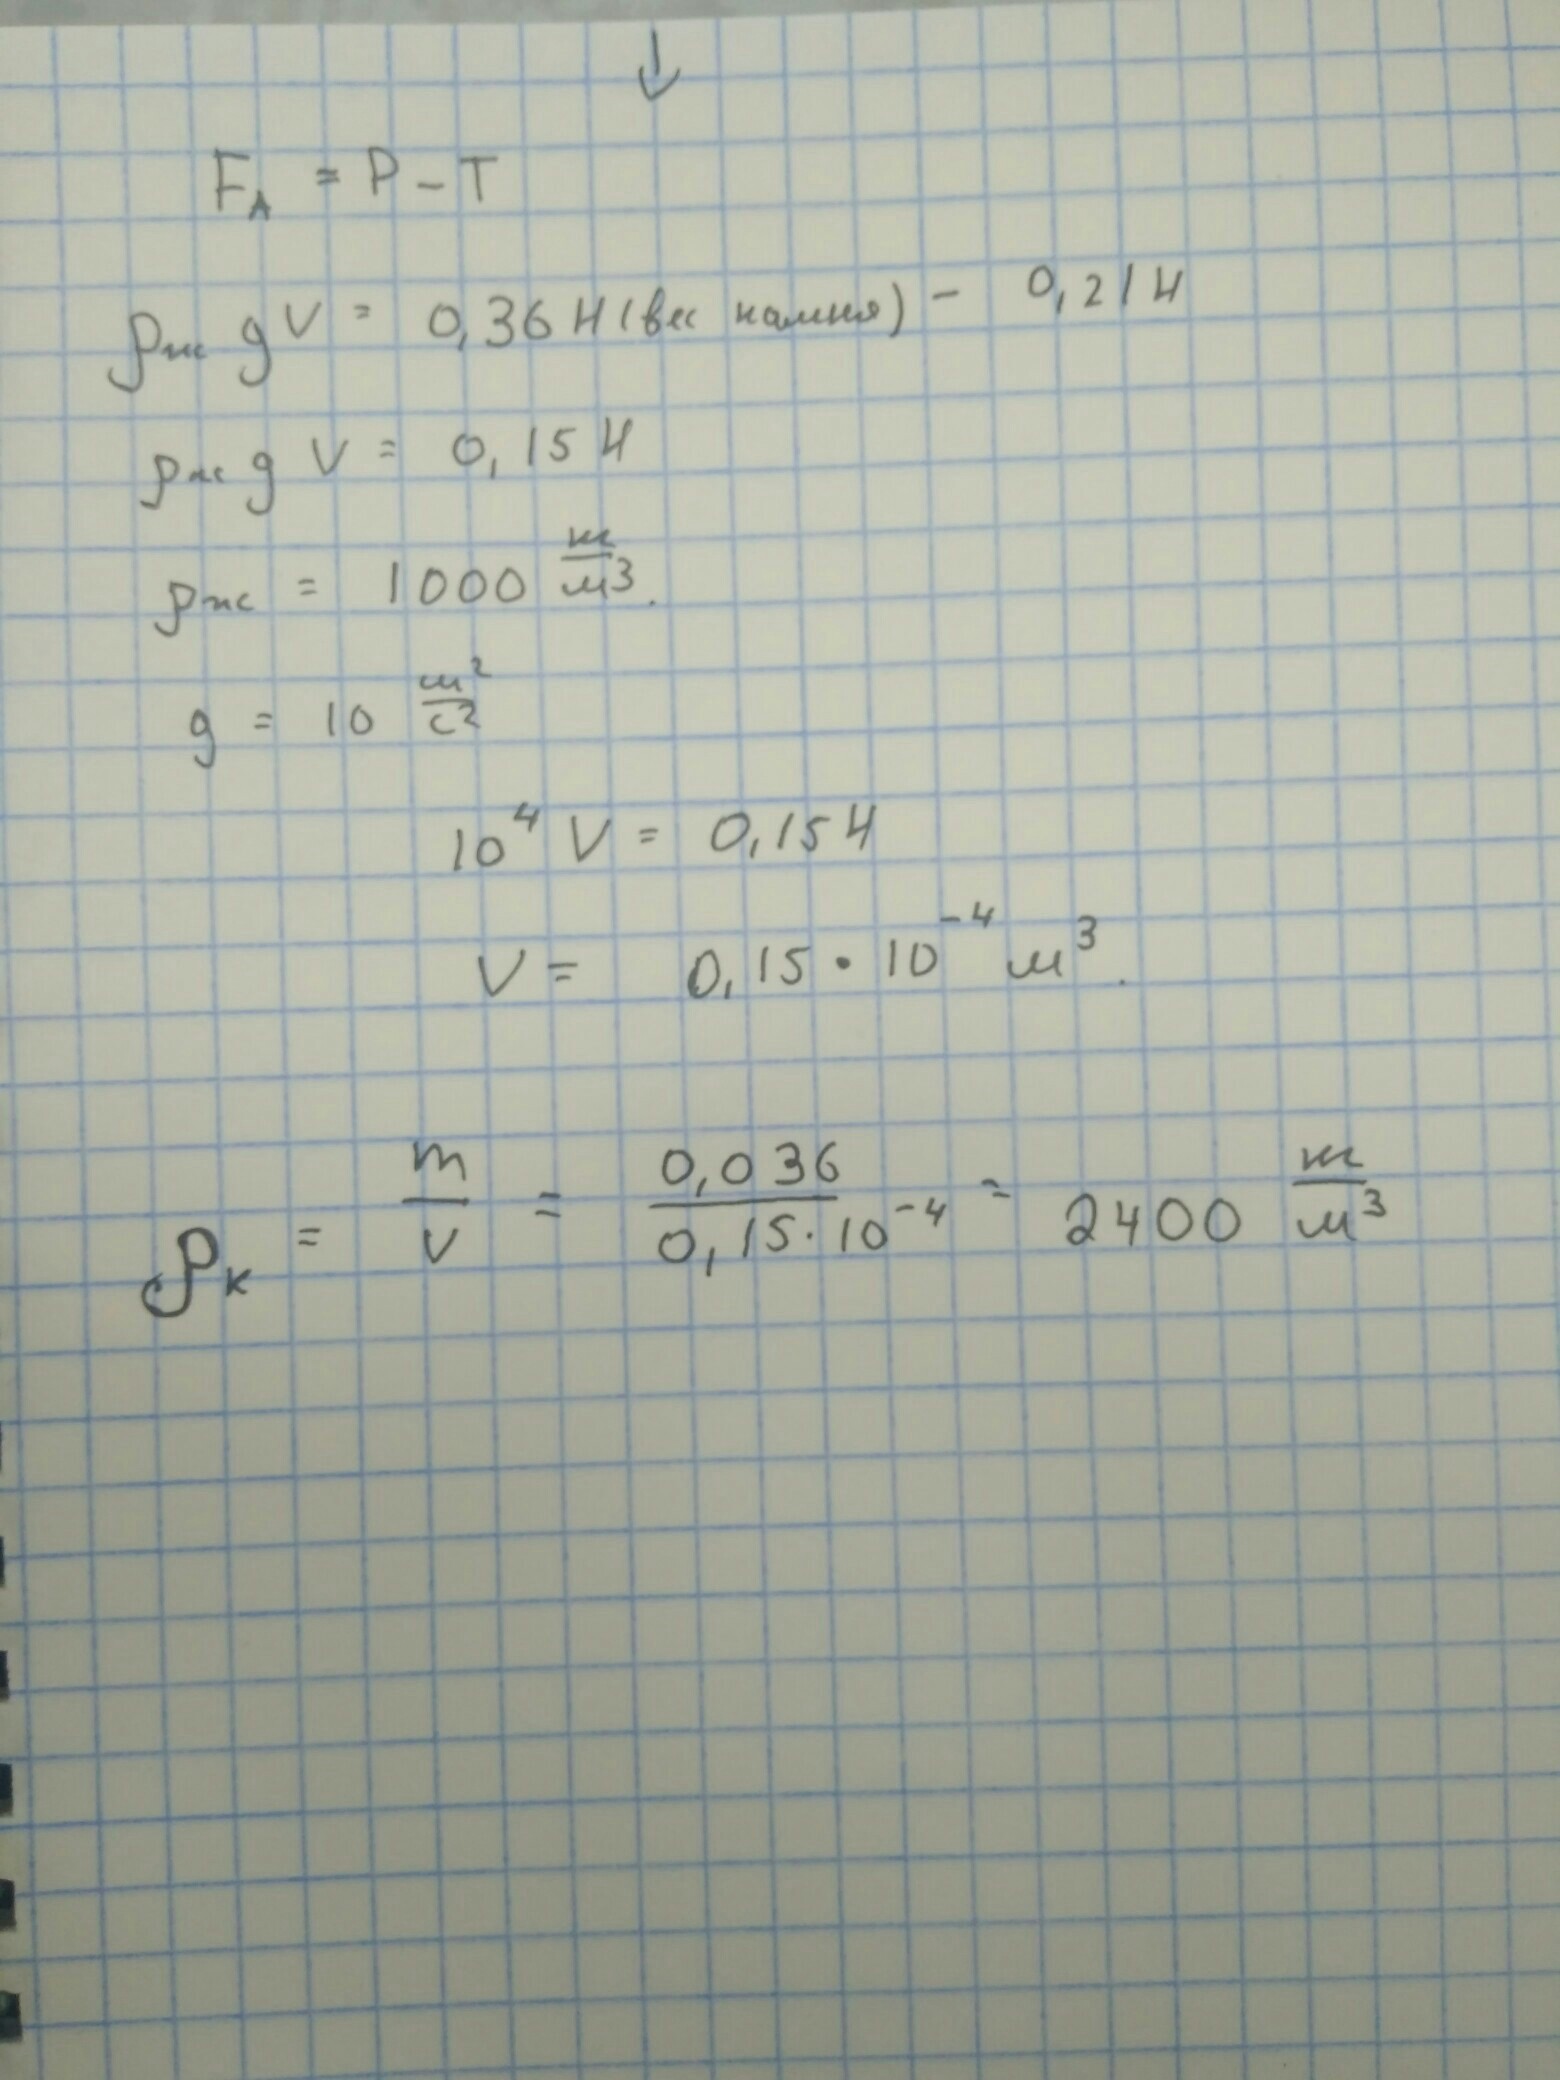 F_A = P - T
ρж g V = 0,36 Н (вес камня) - 0,21 Н
ρж g V = 0,15 Н
ρж = 1000 кг/м³.
g = 10 м²/с²
10⁴ V = 0,15 Н
V = 0,15 · 10⁻⁴ м³.
ρк = m/V = 0,036/0,15·10⁻⁴ = 2400 кг/м³